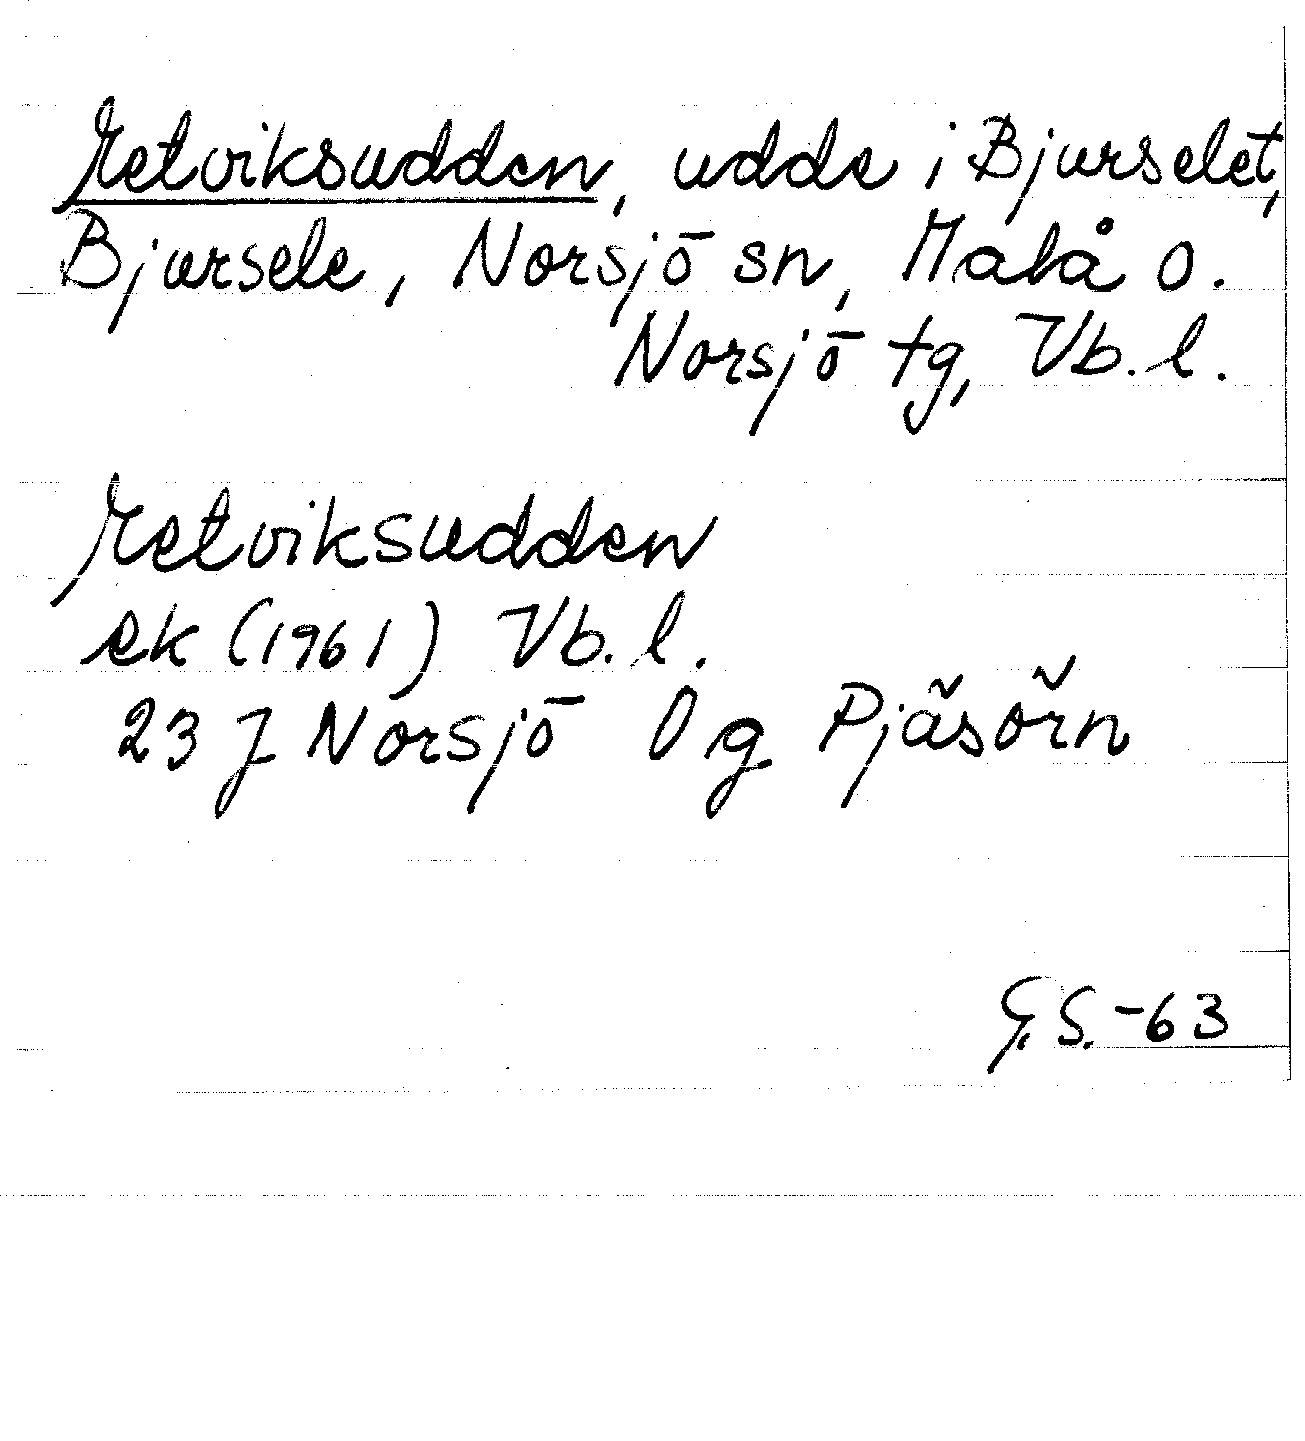 Yetviksudden, udde i Bjurselet,
Bjursele, Norsjö sn, Malå o.
Norsjö tg, Vb. l.
Yetviksudden
ek (1961) Vb. l.
23 J Norsjö 0 g Pjäsörn
G. S. -63